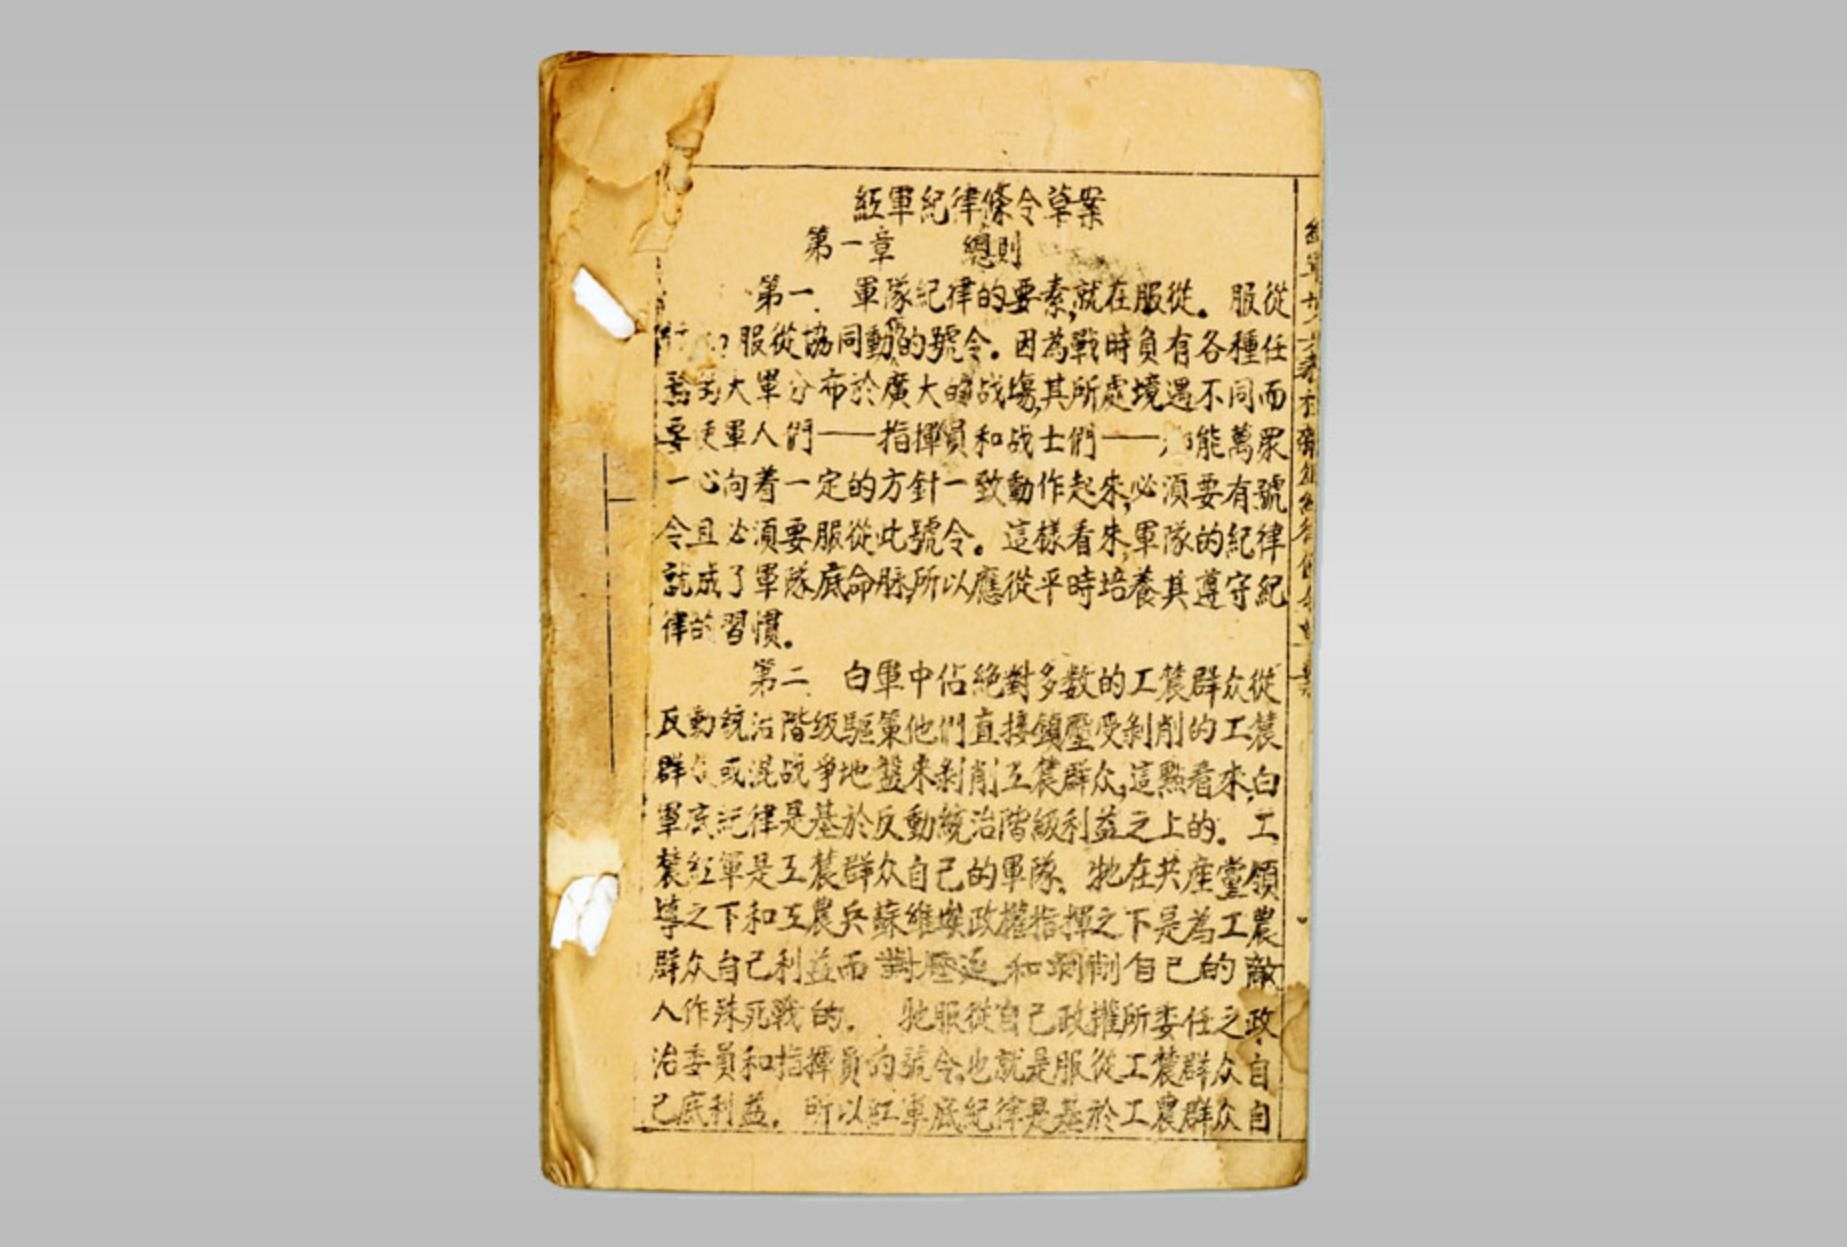 紅軍紀律條令草案
第一章 總則
第一. 軍隊紀律的要素,就在服從。服從
服從協同動作的號令。因為戰時負有各種任
務的大軍分布於廣大的战塲,其所處境遇不同而
要使軍人們——指揮員和战士們——都能萬眾
一心向着一定的方針一致動作起來,必須要有號
令且必須要服從此號令。這樣看來,軍隊的紀律
就成了軍隊底命脉,所以應從平時培養其遵守紀
律的習慣。
第二. 白軍中佔絕對多数的工農群众從
反動統治階級驅策他們直接鎮壓受剝削的工農
群众或混战爭地盤來剝削工農群众,這點看來,白
軍底紀律是基於反動統治階級利益之上的。工
農紅軍是工農群众自己的軍隊。牠在共產黨領
導之下和工農兵蘇維埃政權指揮之下是為工農
群众自己利益而對壓迫和剝削自己的敵
人作殊死戰的。牠服從自己政權所委任之政
治委員和指揮員的號令,也就是服從工農群众自
己底利益。所以紅軍底紀律是基於工農群众自